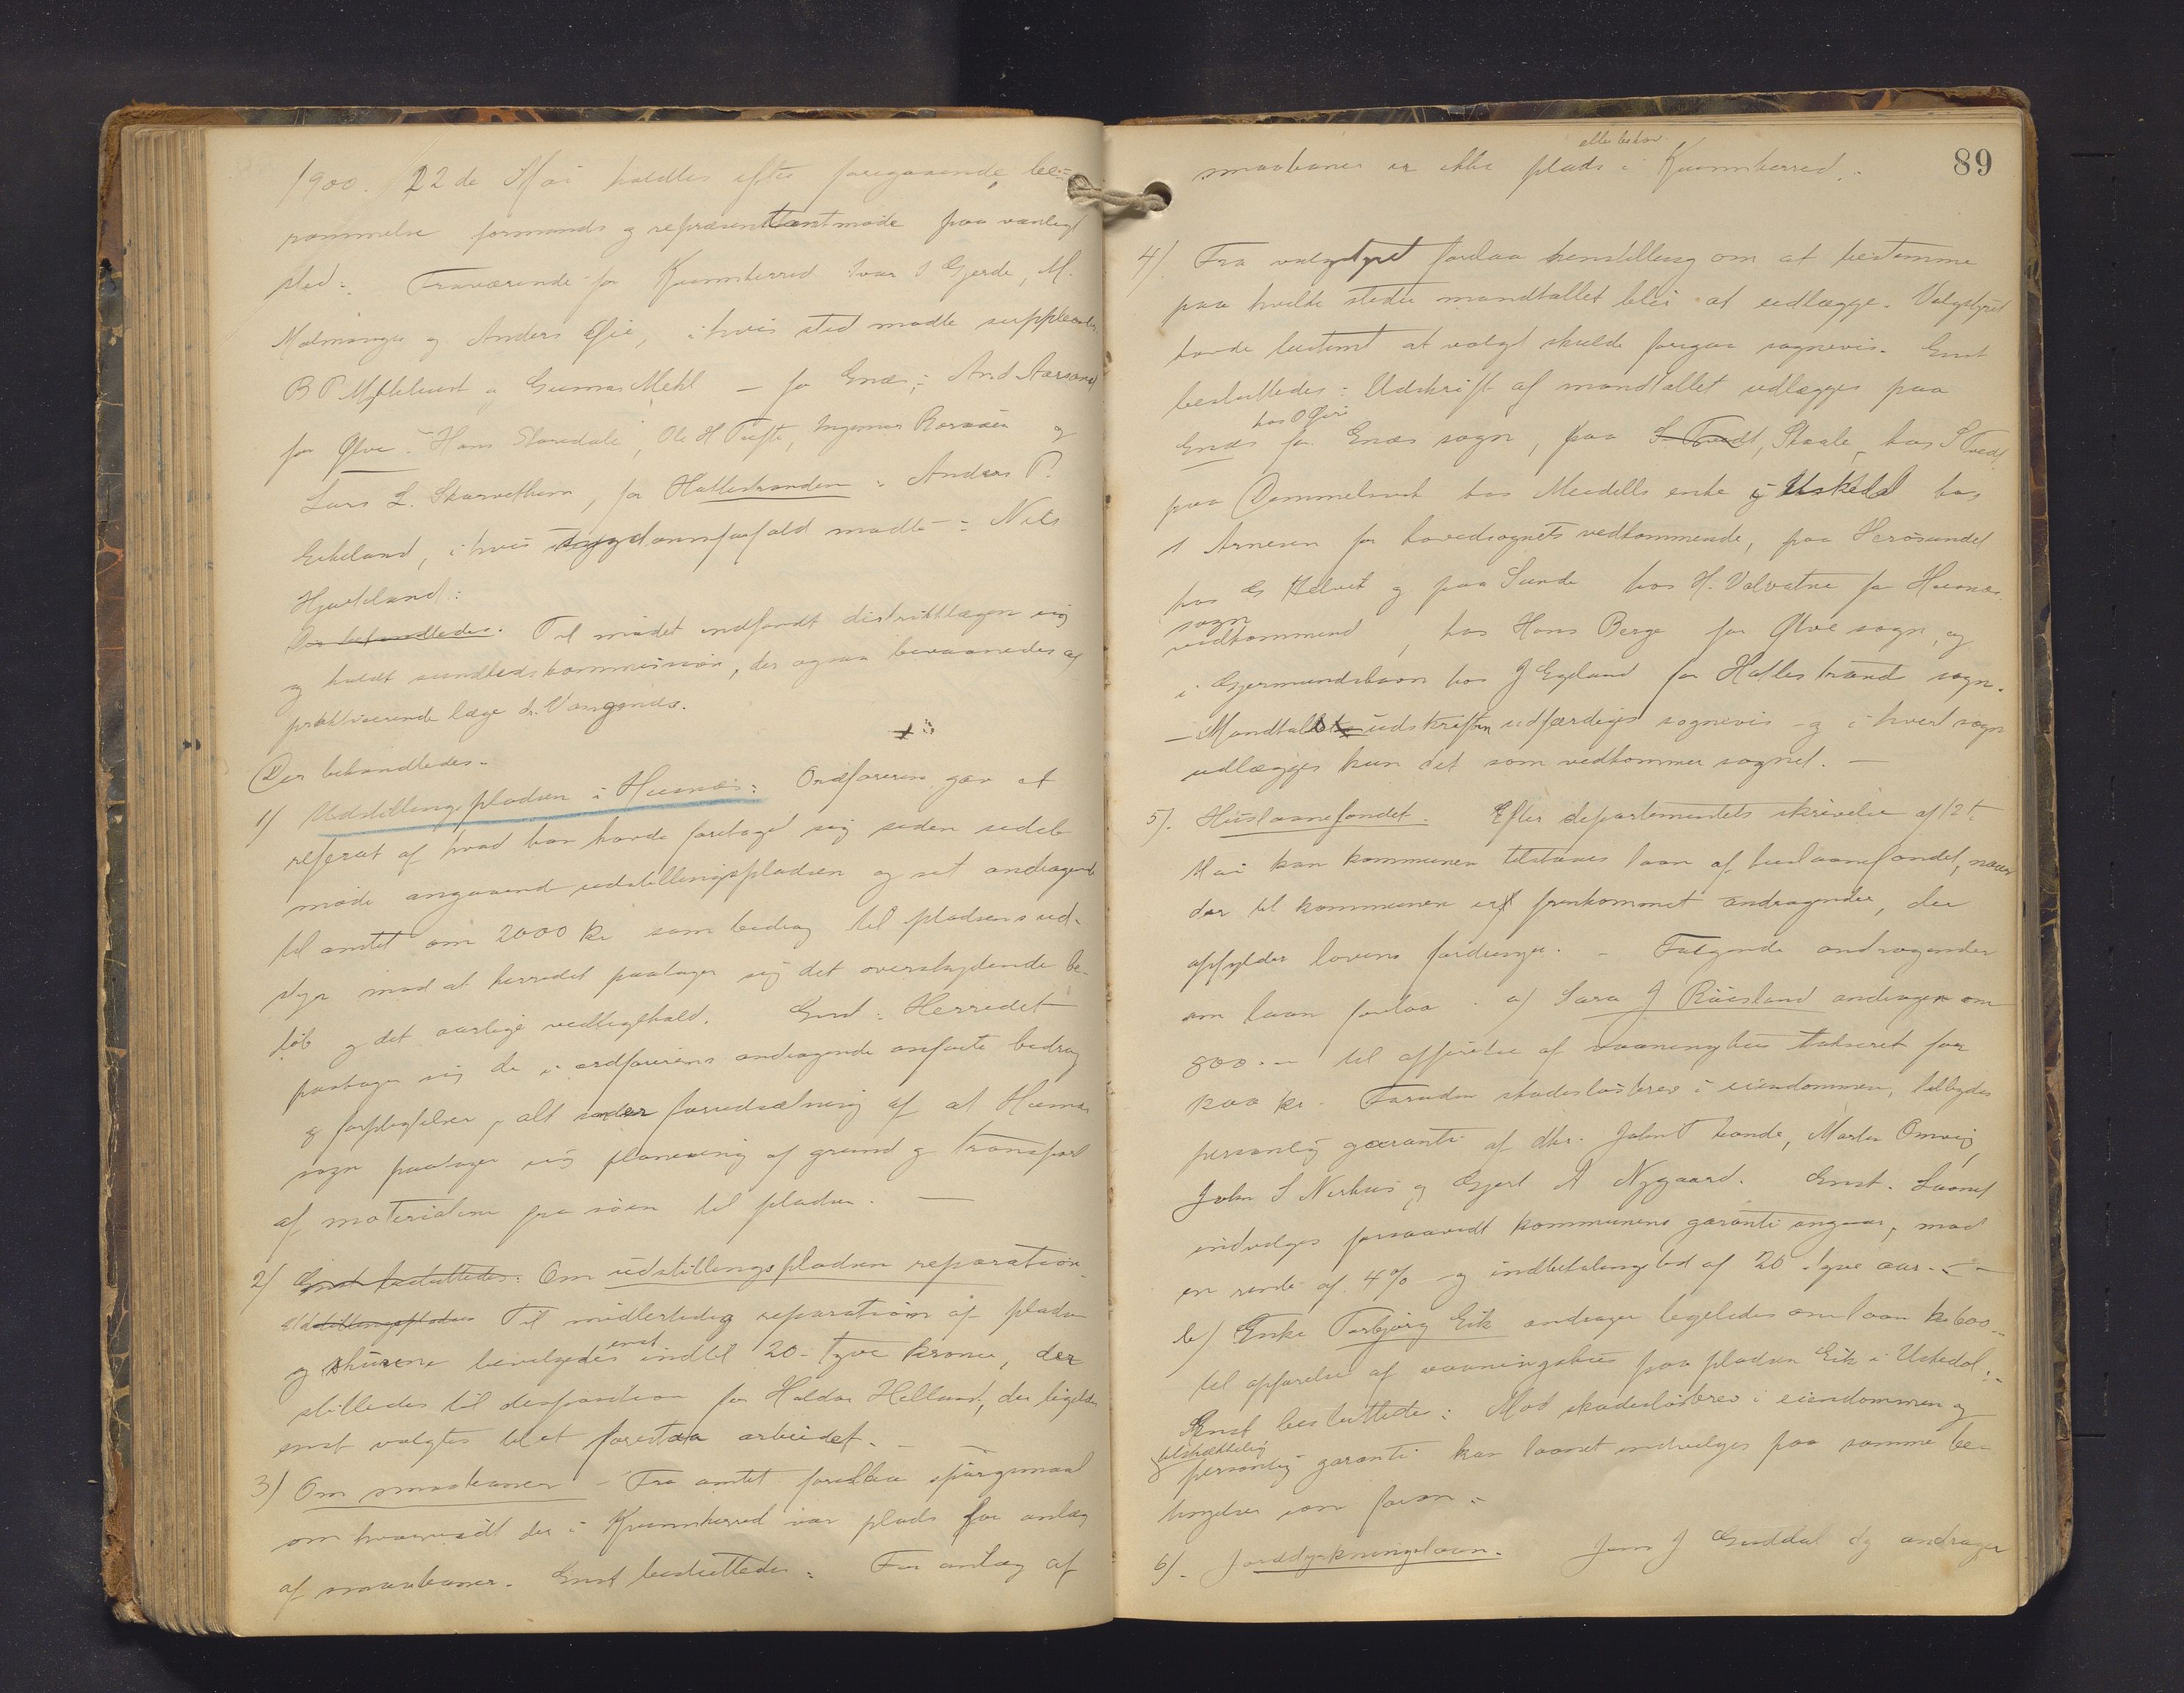 1900. 22de Mai holdtes efter foregaaende be-
rammelse formands og repræsentantmøde paa vanligt
sted:. Fraværende for Kvinnherred Ivar S Gjerde, M.
Malmanger og Anders Øie, i hvis sted mødte suppleanter
B P Myklebust og Gunnar Mehl – for Enæs: And Aarsand
for Ølve: Hans Staredale, Ole H Tufte, Ingemar
Lars L. Skarvethun, for Hallestranden: Anders P.
Eikeland, i hvis sygdomsforfald mødte: Nils
Hjorteland:
Der behandledes. Til mødet indfandt distriktlægen sig
og holdt sundhedskommission, der ogsaa bivaanedes af
praktiserende læge dr. Vangsnæs.
Der behandledes.
1) Udstillingspladsen i Husnæs: Ordføreren gav et
referat af hvad han havde foretaget sig siden sidste
møde angaaende udstillingspladsen og sit andragende
til amtet om 2000 kr som bidrag til pladsens ud-
styr mod at herredet paatager sig det overskydende be-
løb og det aarlige vedligehold. Enst: Herredet
paatager sig de i ordførerens andragende anførte bidrag
og forpligtelser, alt under forudsætning af at Husnæs
sogn paatager sig planering af grund og transport
af materialene fra søen til pladsen. —
2) Enst besluttedes: Om udstillingspladsen reparation.
Udstillingspladsen Til midlertidig reparation af pladsen
og skurene bevilgedes enst indtil 20 - tyve kroner, der
stilledes til desposition for Haldor Helland, der ligeledes
enst valgtes til at forestaa arbeidet. –
3) Om smaabaner – Fra amtet forelaa spørgsmaal
om hvorvidt der i Kvinnherred var plads for anlæg
af smaabaner. Enst besluttedes: For anlæg af
89
smaabaner er ikke plads eller behov i Kvinnherred. -
4) Fra valgstyret forelaa henstilling om at bestemme
paa hvilke steder mandtallet blir at udlægge. Valgstyret
havde bestemt at valget skulde foregaa sognevis. Enst
besluttedes: Udskrift af mandtallet udlægges paa
Enæs hos O Øie for Enæs sogn, paa S. Tvedt, Skaale, hos S Tvedt,
paa Dømmelsvik hos Meidells enke og Uskedal hos
S Arnesen for hovedsognets vedkommende, paa Herøsundet
hos Helvik og paa Sunde hos H. Valvatne for Husnæs
sogn vedkommend, hos Hans Berge for Ølve sogn, og
i Gjermundshavn hos J Egeland for Hallestrand sogn.
– Mandtalsudskriften udfærdiges sognevis – og i hvert sogn
udlægges kun det som vedkommer sognet. —
5). Huslaanefondet. Efter departementets skrivelse af 12te
Mai kan kommunen tilstaaes laan af huslaanefondet, naar
der til kommunen er fremkommet andragender, der
opfylder lovens fordringer. – Følgende andragender
om laan forelaa: a) Lars J Røisland andrager om
800.– til opførelse af vaaningshus takseret for
kr. Foruden skadesløsbrev i eiendommen, tilbydes
personlig garanti af dhr. John T Sande, Martin Omvig,
John S Nerhus og Gjert A Nygaard. Enst. Laanet
indvilges forsaavidt kommunens garanti angaar, mod
en rente af 4% og indbetalingstid af 20 - tyve aar. –
b) Enke Torbjørg Eik andrager ligeledes om laan kr 600 -
til opførelse af vaaningshus paa pladsen Eik i Uskedal: -
Enst besluttedes: Mod skadesløsbrev i eiendommen og
tilstrækkelig personlig garanti kan laanet indvilges paa samme be-
tingelser som foran. -
6). Jorddyrkningslaan. Jens J Guddal dy andrager